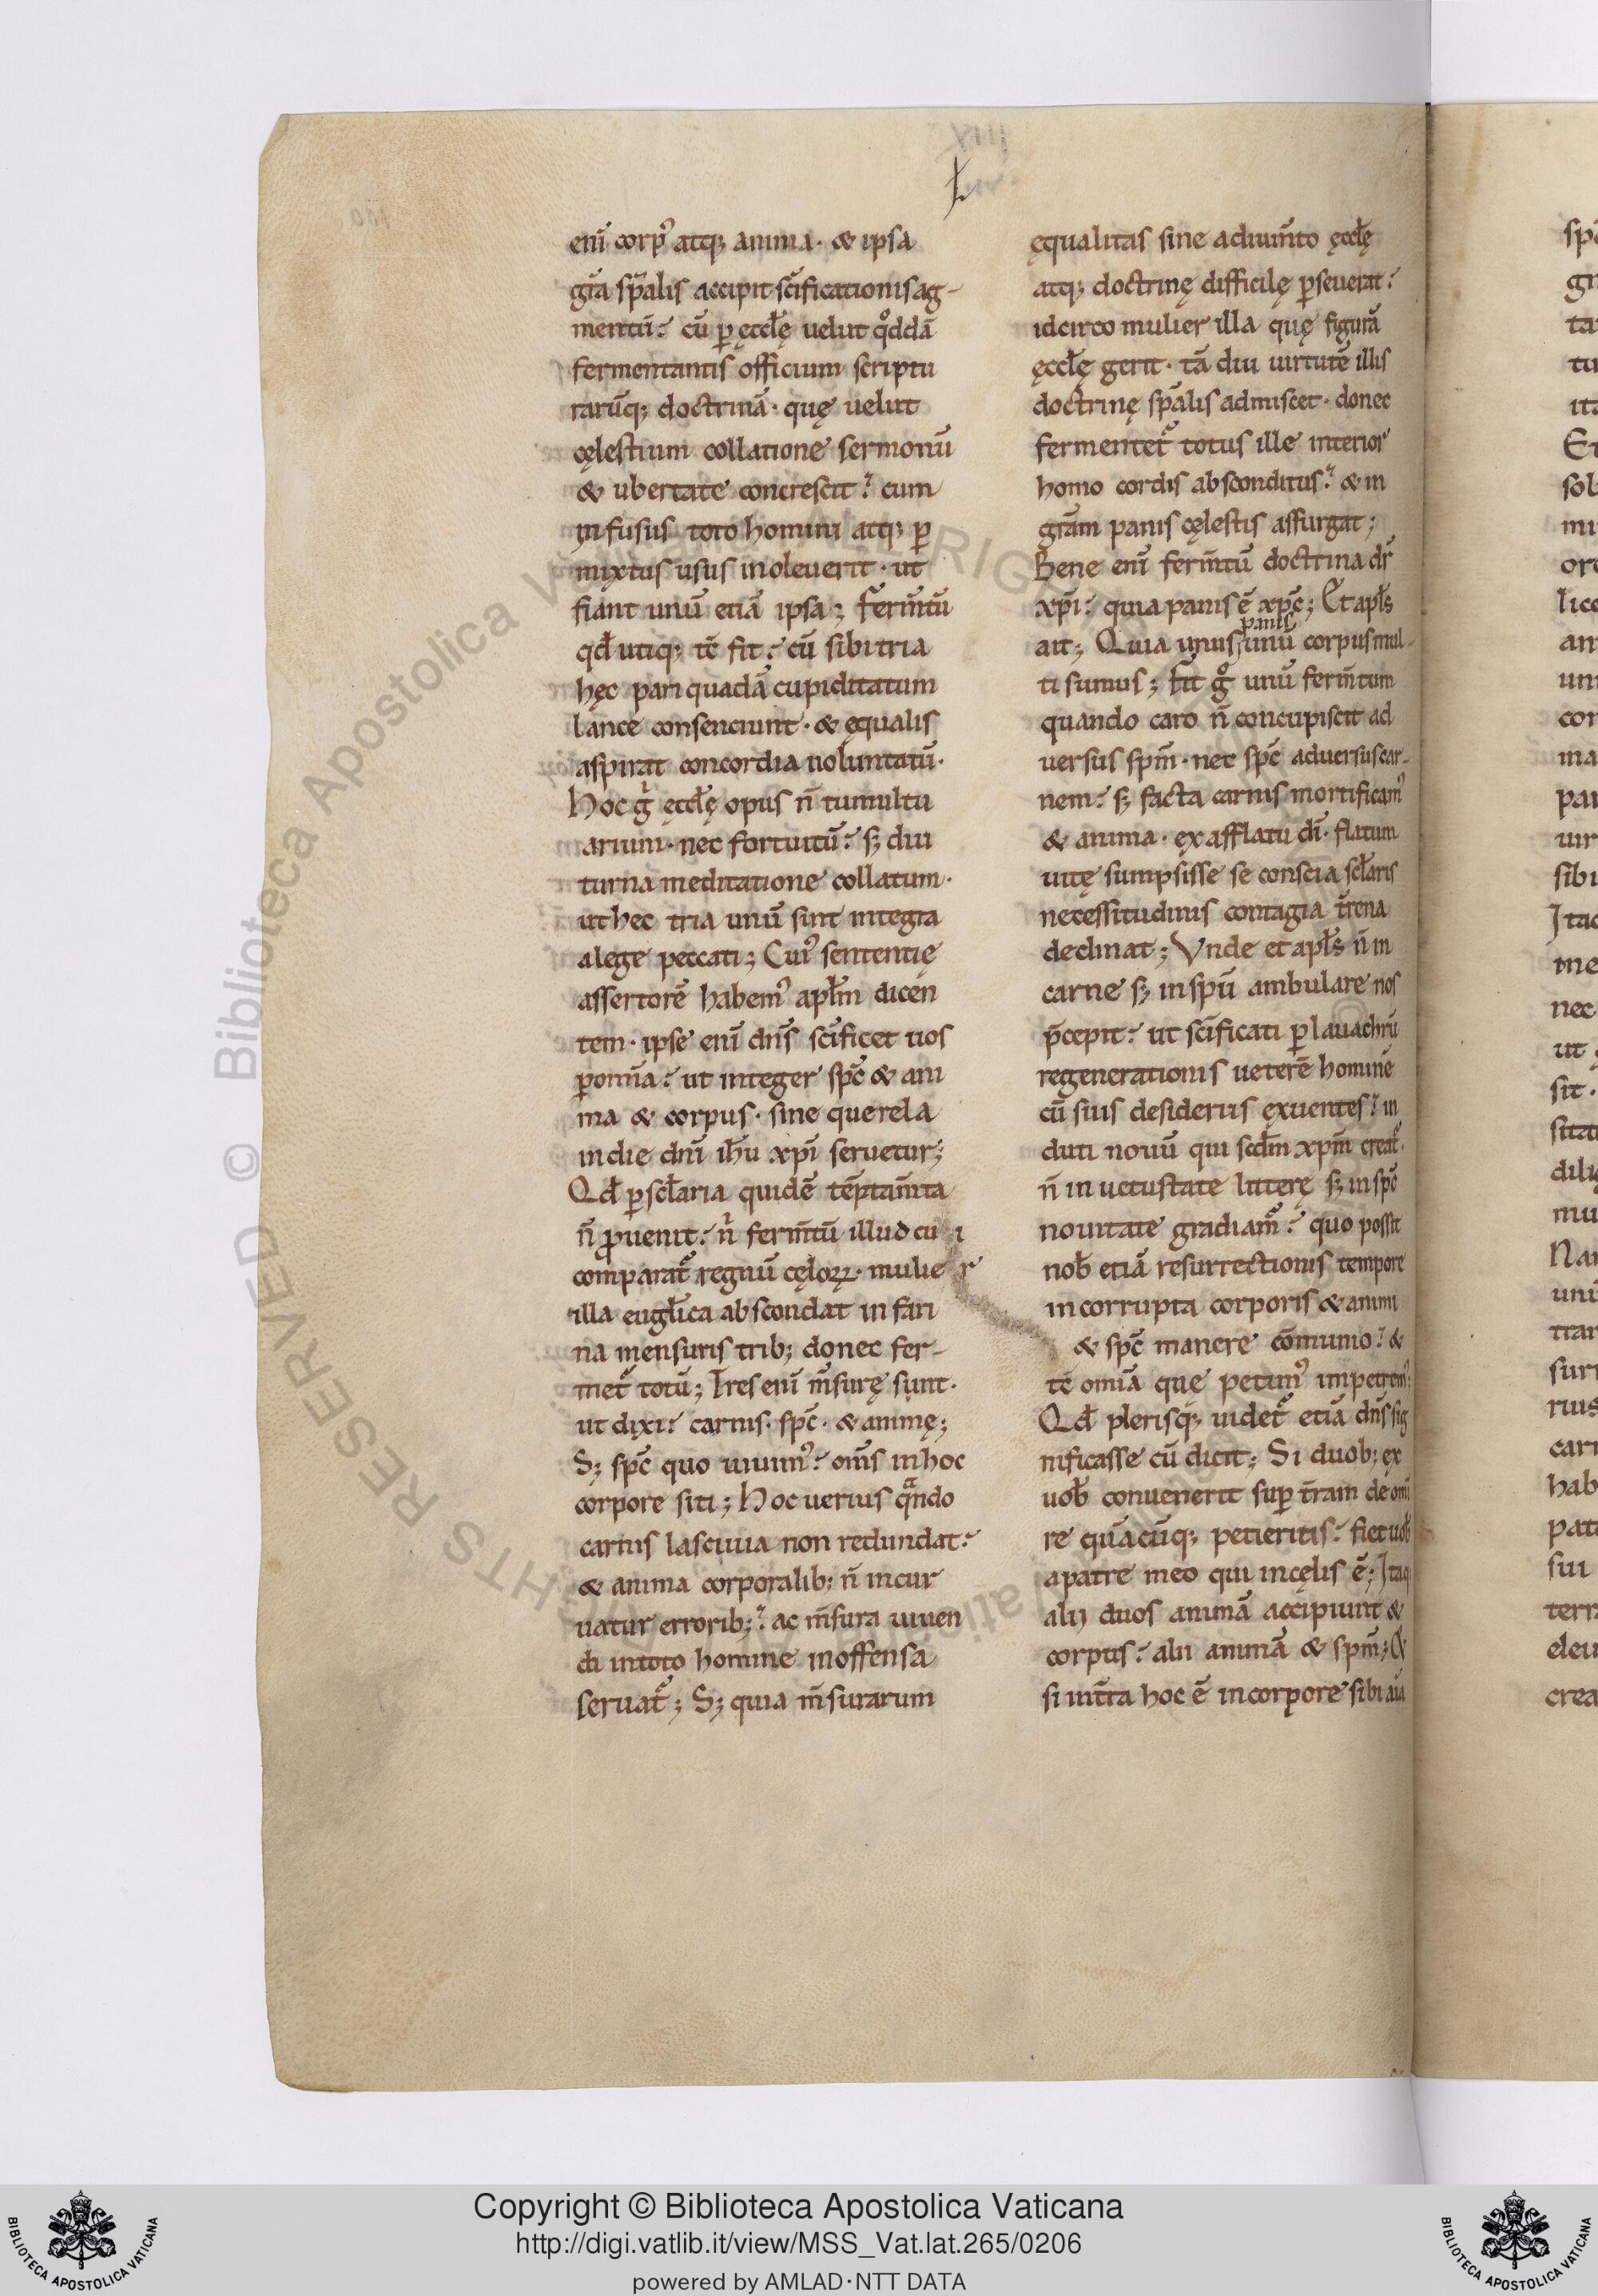 enī corpꝰ atq; anima· & ipsa
gr̄a sp̄alis accipit sc̄ificationis ag-
mentū? cū ꝑ ęccłę uelut qͦddā
fermentantis officium scriptu
rarūq; doctrinā· quę uelut
cęlestium collatione sermonū
& ubertate concrescit? cum
infusus toto homini atq; ꝑ
mixtus usus inoleuerit· ut
fiant unū etiā ipsa; Ferm̄tū
qđ utiq; tc̄ fit? cū sibi tria
hęc pari quadā cupiditatum
lance consenciunt· & ęqualis
aspirat concordia uoluntatū·
Hoc gͥ ęccłę opus n̄ tumultu
arium· nec fortuitū? s; diu
turna meditatione collatum·
ut hec tria unū sint integra
a lege peccati; Cuiꝰ sententię
assertorē habemꝰ apłm dicen
tem· ipse enī dn̄s sc̄ificet uos
ꝑ om̄ia? ut integer sp̄c & ani
ma & corpus· sine querela
in die dn̄i ih̄u xp̄i seruetur;
Qđ ꝑ scłaria quidē tēptam̄ta
n̄ ꝓuenit? nͥ ferm̄tū illud cui
comparat᷒ regnū cęloꝝ· mulier
illa euglīca abscondat in fari
na mensuris trib; donec fer-
met᷒ totū; Tres enī m̄surę sunt·
ut dixi? carnis· sp̄c· & animę;
S; sp̄c quo uiuimꝰ? om̄s in hoc
corpore siti; Hoc uerius qᷓndo
carnis lasciuia non redundat?
& anima corporalib; n̄ incur
uatur errorib;? ac m̄sura uiuen
di in toto homine inoffensa
seruat᷒; S; quia m̄surarum
ęqualitas sine adiuīn̄to ęccłę
atq; doctrinę difficilę ꝑseuerat?
idcirco mulier illa quę figurā
ęccłę gerit· tā diu uirtutē illis
doctrinę sp̄alis admiscet· donec
fermentet᷒ totus ille interior
homo cordis absconditus? & in
gr̄am panis cęlestis assurgat;
Bene enī ferm̄tū doctrina dr̄
xp̄i? quia panis ē xp̄c; Et apłs
panis
ait; Quia unus unū corpus mul-
ti sumus; Fit gͦ unū ferm̄tum
quando caro n̄ concupiscit ad
uersus sp̄m· nec sp̄c aduersus car-
nem? s; facta carnis mortificamꝰ
& anima· ex afflatu dī· flatum
uitę sumpsisse se conscia scłaris
necessitudinis contagia tr̄rena
declinat; Vnde et apłs n̄ in
carne s; in sp̄u ambulare nos
p̄cepit? ut sc̄ificati ꝑ lauachrū
regenerationis ueterē hominē
cū suis desideriis exuentes? in
duti nouū qui scd̄m xp̄m creat᷒·
n̄ in uetustate litterę s; in sp̄c
nouitate gradiam᷒? quo possit
nob̄ etiā resurrectionis tempore
incorrupta corporis & animi
& sp̄c manere cōmunio? &
tc̄ omīa quę petimꝰ impetremꝰ;
Qđ plerisq; uidet᷒ etiā dn̄s sig
nificasse cū dicit; Si duob; ex
uob̄ conuenerit suꝑ tr̄am de omī
re quācūq; petieritis? fiet uob̄
a patre meo qui in cęlis ē; Itaq;
alij duos animā accipiunt &
corpus? alii animā & sp̄m; &
si intͣa hoc ē in corpore sibi aīa
Copyright © Biblioteca Apostolica Vaticana
http://digi.vatlib.it/view/MSS_Vat.lat.265/0206
powered by AMLAD·NTT DATA
BIBLIOTECA APOSTOLICA VATICANA
BIBLIOTECA APOSTOLICA VATICANA